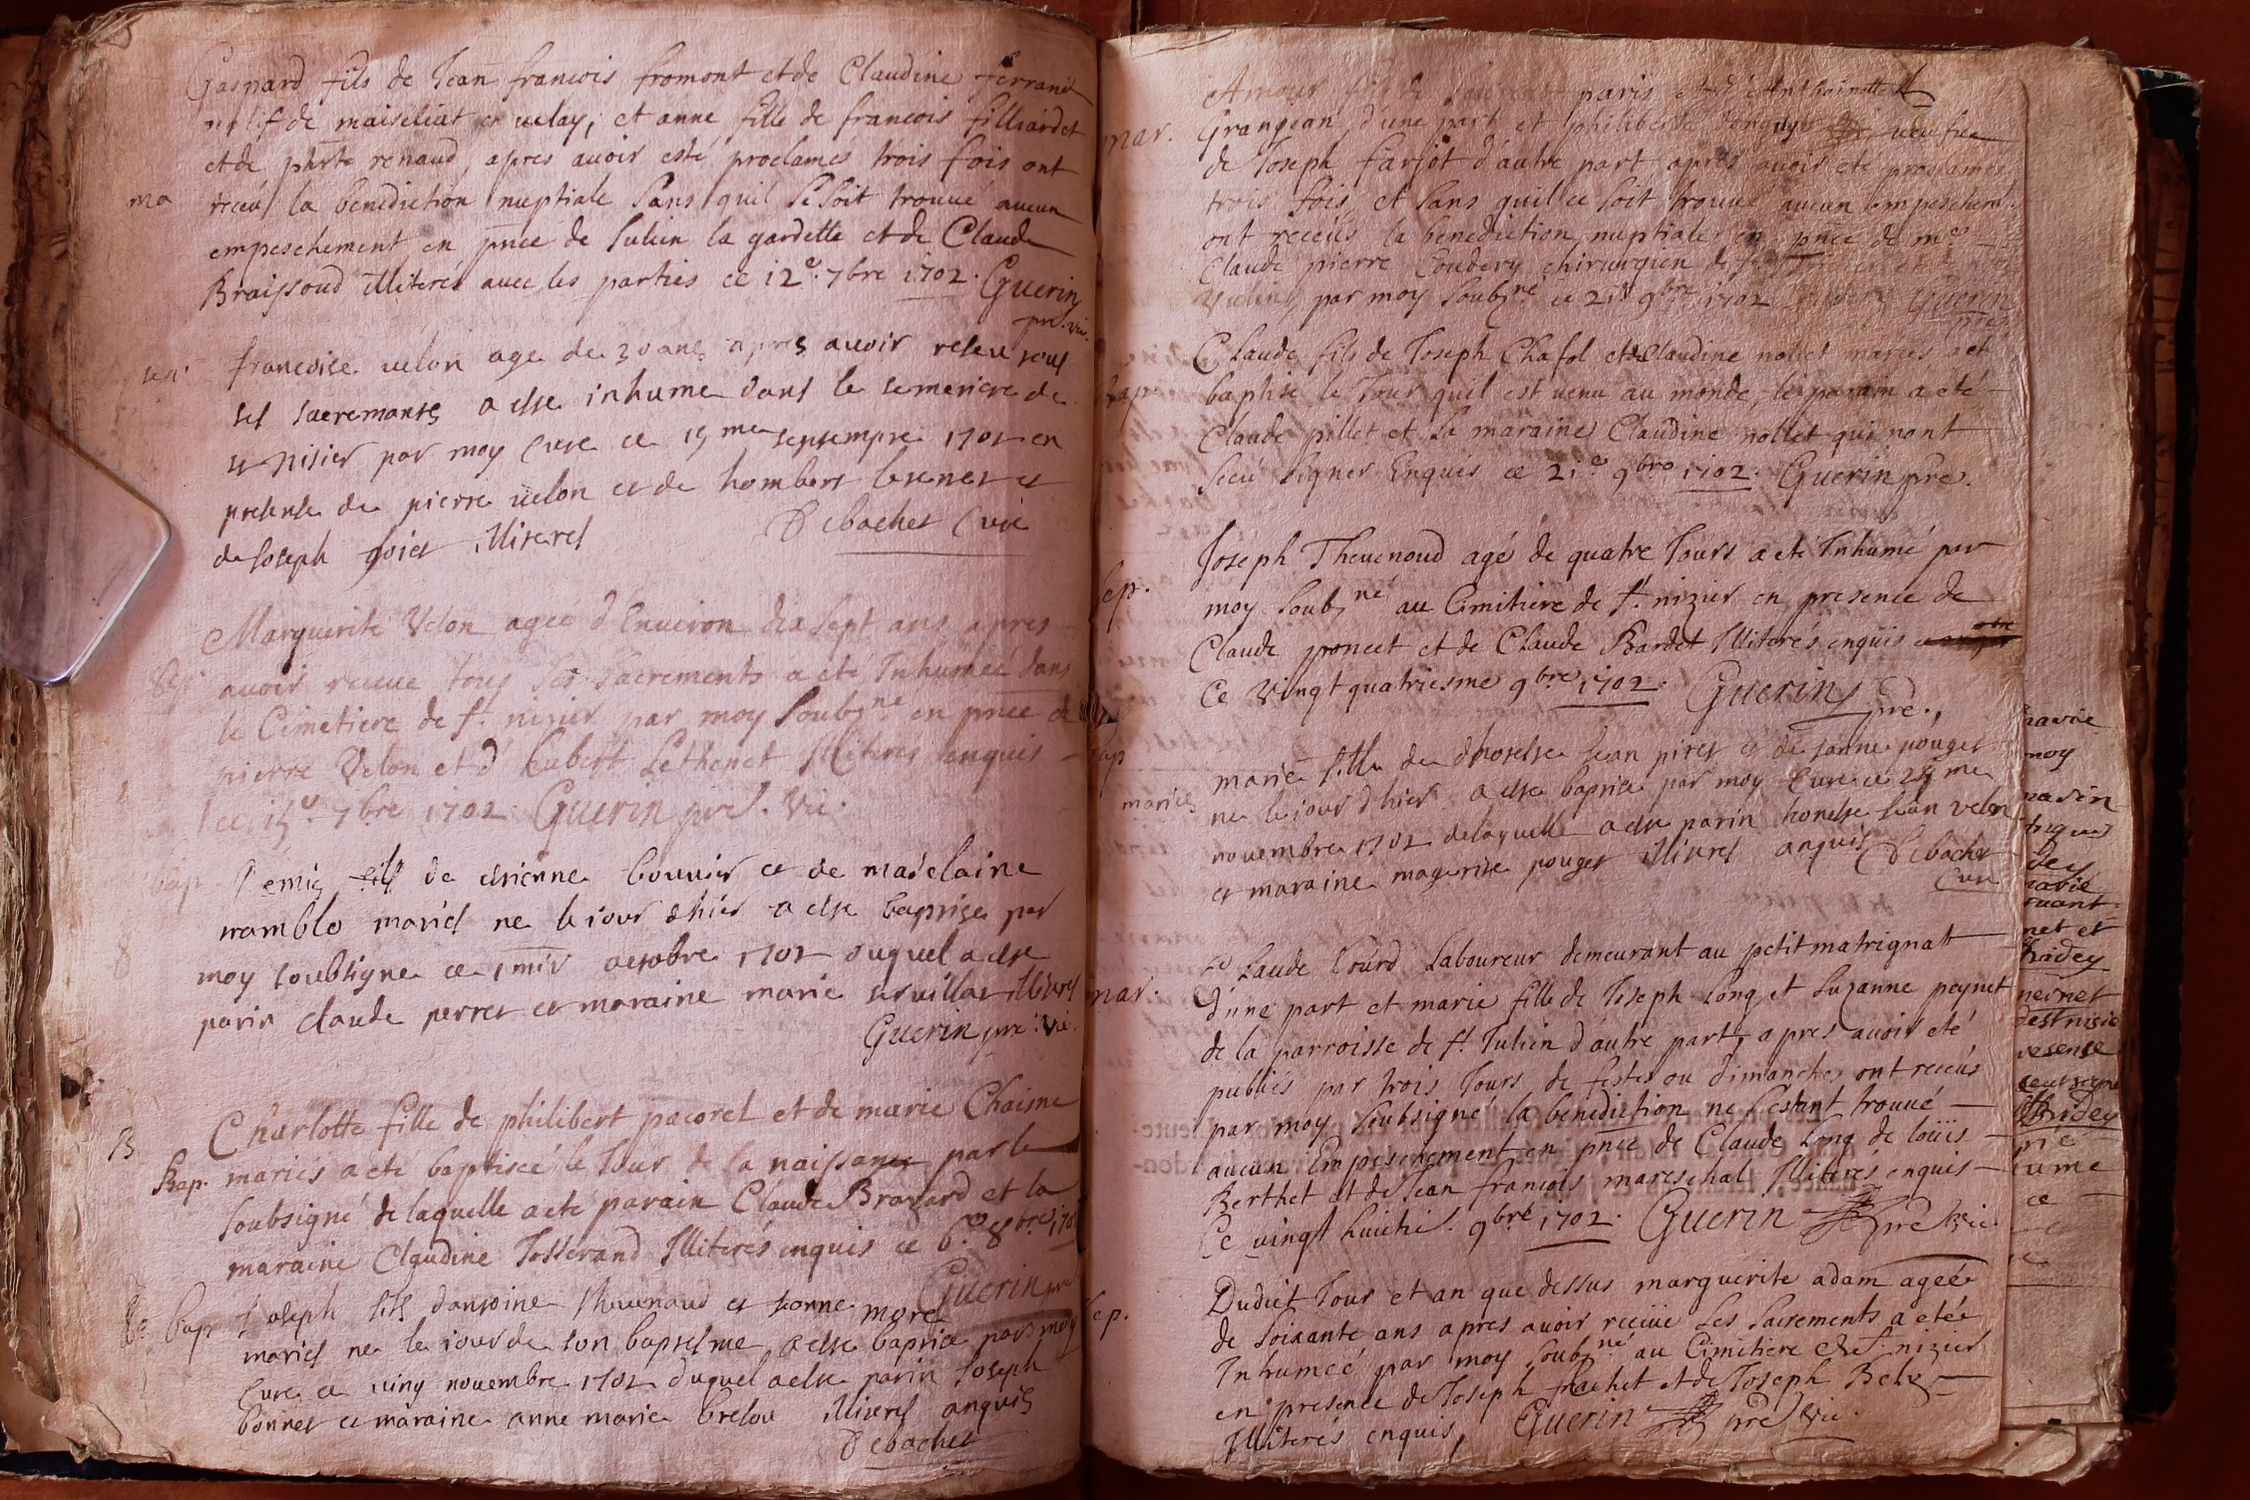 Gaspard fils de Jean francois fromont et de Claudine ferrand
natif de en uelay, et anne fille de francois filliardet
et de phrte renaud, apres auoir esté proclamés trois fois ont
ma
receu la benediction nuptiale sans quil se soit trouué aucun
empeschement en pnce de Julien la gardette et de Claude
Braissoud illiterés auec les parties ce 12e. 7bre 1702. Guerin
pre. vic.
francoise uelon age de 30 ans apres auoir reseu tous
ses sacremants a este inhume dans le semeniere de
st nisier par moy Cure ce 15me septempre 1702 en
presense de pierre uelon et de hombert lesenet et
de Joseph illiteres Debachet Cure
Marguerite Velon ageé d'Enuiron dix sept ans apres
auoir receue tous ses sacrements a ete Inhumeé dans
le Cimetiere de st. nisier par moy soubsné en pnce de
pierre Velon et d'hubert Lethenet Illiteres enquis
ce 15e. 7bre 1702 Guerin pre. Vic.
bap
Demis fils de etienne bouuier et de madelaine
mariés ne le iour dhier a este baptise par
moy soubsigne ce 1mir octobre 1702 duquel a este
parin claude perret et maraine marie illiteres
Guerin pre Vic.
B
Charlotte fille de philibert pacoret et de marie Chaisne
Bap. mariés a eté baptiseé le Jour de sa naissance par le
soubsigné de laquelle a eté parain Claude Brouard et la
maraine Claudine Josserand Illiterés enquis ce 6e. 8bre 1702
Guerin pre
bap Joseph fils dantoine theuenaud et ianne morel
mariés ne le iour de son baptesme a este baptise par moy
Cure ce uing nouembre 1702 duquel a este parin Joseph
bonnet et maraine anne marie brelou illiteres anquis
Debachet
Amour fils de paris et d'Anthoinette
mar. Grangean d'une part et philiberte ueufue
de Joseph farjot d'autre part apres auoir eté proclamés
trois fois et sans quil ce soit trouué aucun empeschemt.
ont receus la benediction nuptiale en pnce de me
Claude pierre Coudery chirurgien de
par moy soubsné ce 21e 9bre 1702 Guerin
pre
Claude fils de Joseph Chafol et de Claudine nollet mariés a eté
bap baptise le Jour quil est uenu au monde, le parain a eté
Claude pillet et la maraine Claudine nollet qui nont
sceu signer Enquis ce 21e 9bre 1702. Guerin pre.
Joseph Theuenoud agé de quatre Jours a eté Inhumé par
sep. moy soubsné au Cimitiere de st. nizier en presence de
Claude poncet et de Claude Bardet Illiterés enquis
Ce Vingt quatriesme 9bre 1702. Guerin
pre.
bap
marie fille de dhoneste Jean piret et de ianne pouget
mariés ne le iour dhier a este baptise par moy Cure ce 28me
nouembre 1702 de laquelle a este parin honeste Jean velon
et maraine magerite pouget illiteres anquis Debachet
Cure
Claude Lourd Laboureur demeurant au petit matrignat
mar. d'une part et marie fille de Joseph Long et Suzanne peynet
de la parroisse de st. Julien d'autre part, apres auoir eté
publiés par trois Jours de festes ou dimanches ont receus
par moy soubsigné la benediction ne s'estant trouué
aucun Empeschement en pnce de Claude Long de loüis
Berthet et de Jean francois mareschal Illiterés enquis
Ce vingt huictie. 9bre 1702. Guerin pre Vic
Dudict Jour et an que dessus marguerite adam ageé
sep. de soixante ans apres auoir receüe ses sacrements a eteé
Inhumeé par moy soubsné au Cimitiere de st. nizier
en presence de Joseph frachet et de Joseph
Illiterés enquis, Guerin pre Vic.
marie
moy
parin
Thidey
pernet
de st nisie
presense
Thidey
ce